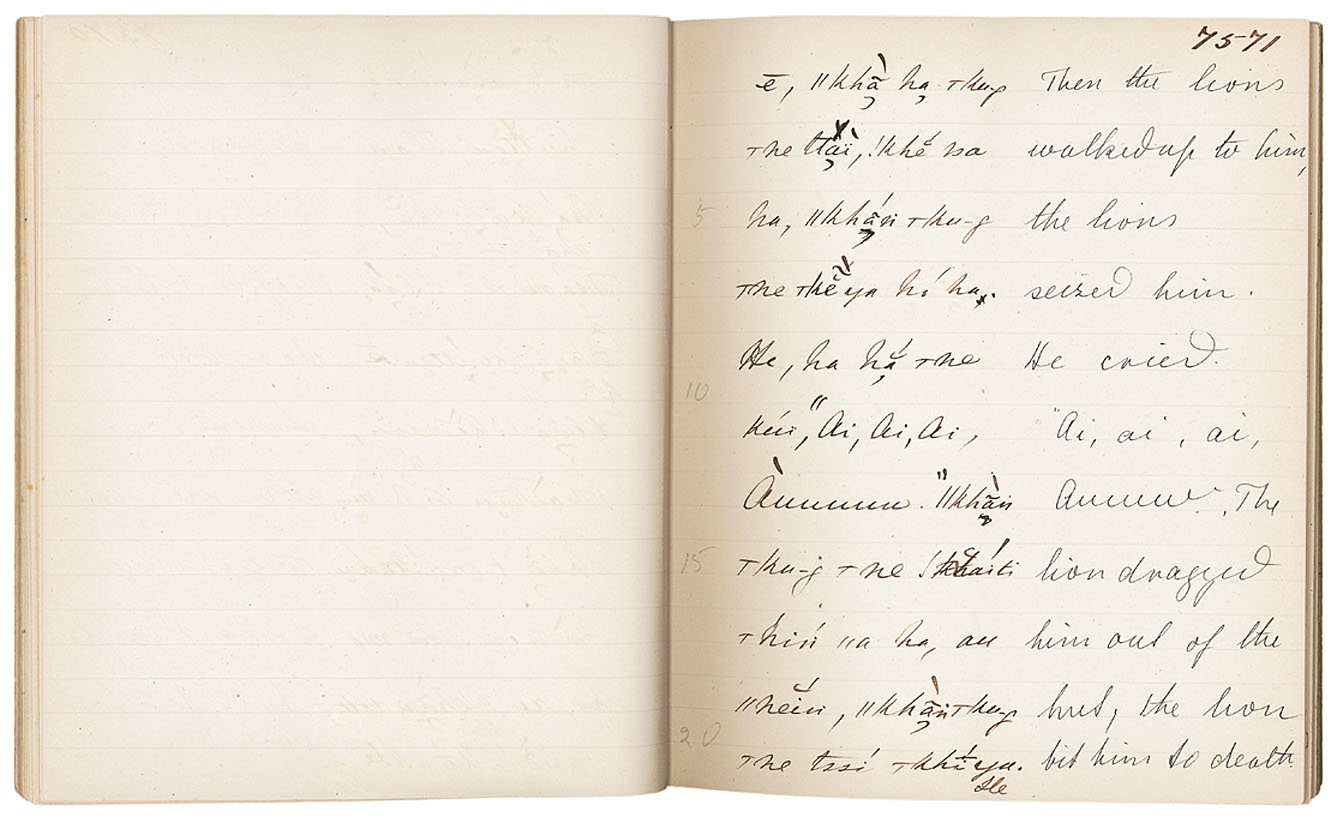 7571
ē, ǁkhā̰ ha̰ ꞇku-g Then the lions
ꞇne ttāī, !khĕ ssa walked up to him,
5 ha, ǁkhā̰n ꞇku-g the lions
ꞇne ꞇkĕ ya hí ha. seized him.
He, ha hā́ ꞇne He cried.
10
kúi, "Ai, Ai, Ai, "Ai, ai, ai,
Àuuuuu." ǁkhā̰n Auuuu." The
15 ꞇku-g ꞇne lion dragged
ꞇhiń ǁa ha, au him out of the
ǁnĕin, ǁkhā̰n ꞇku-g hut, the lion
20 ꞇne tssí ꞇkhī́ ya. bit him to death.
He